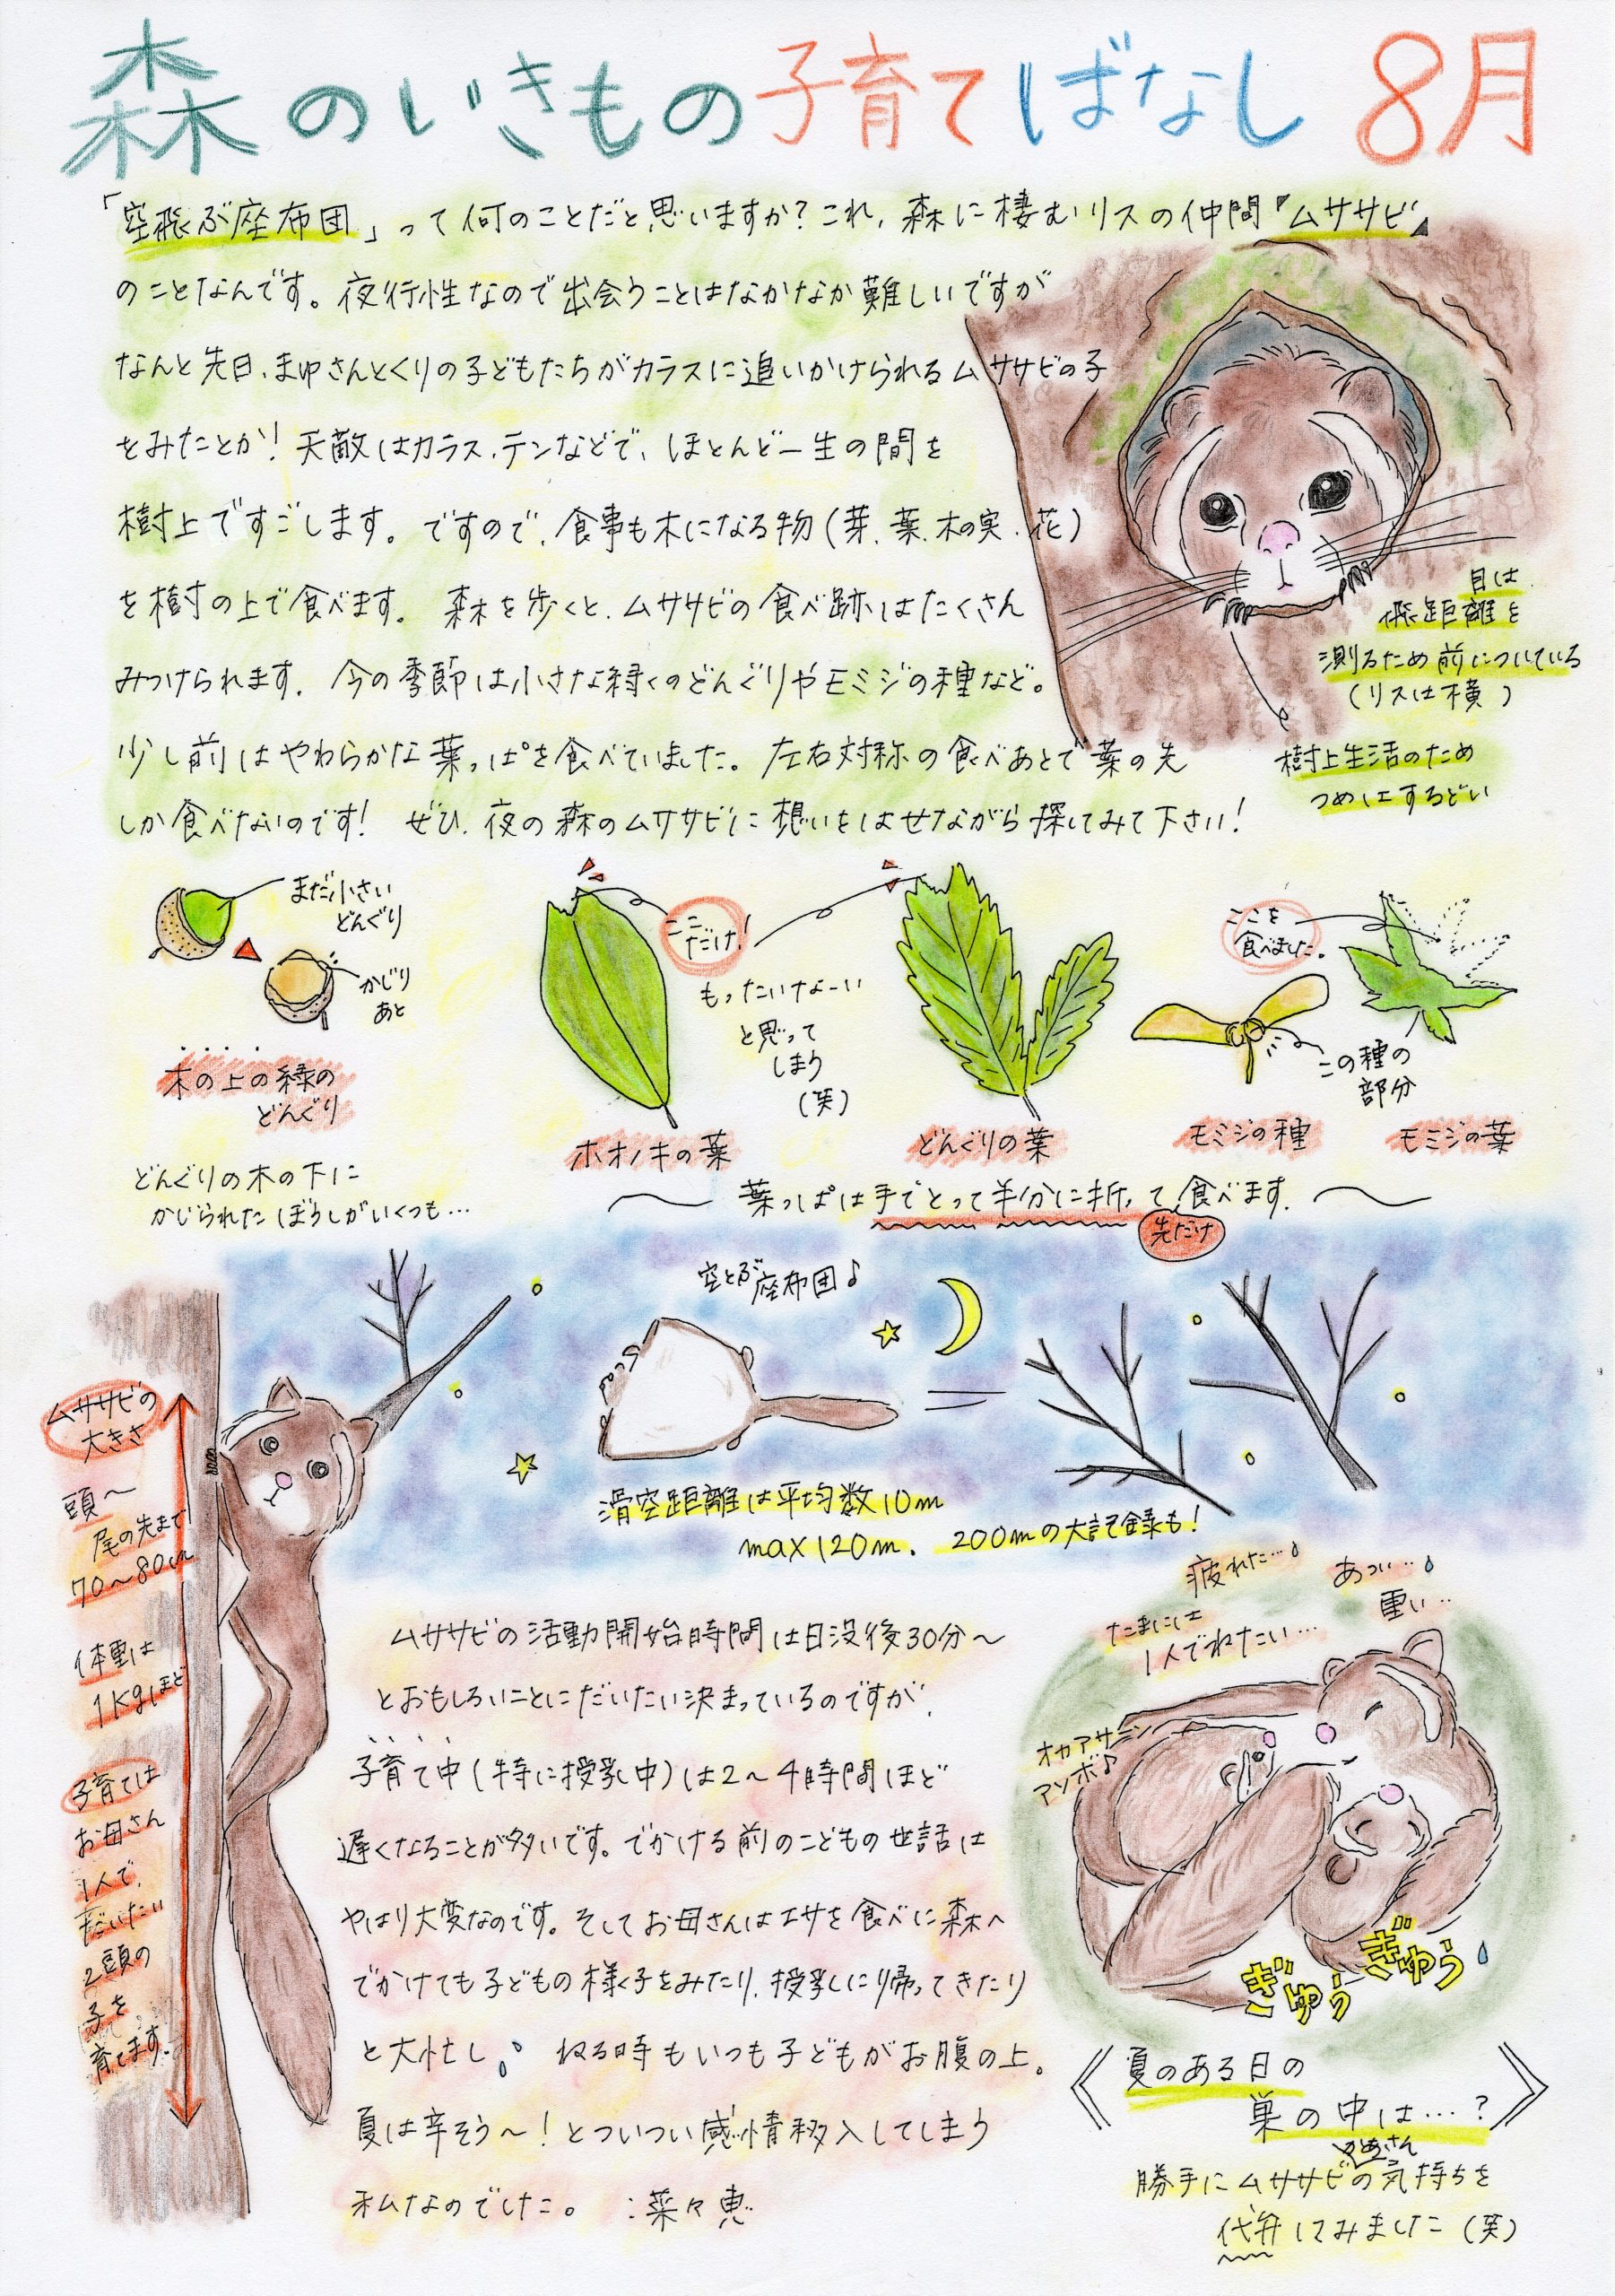 森のいきもの子育てばなし 8月
「空飛ぶ座布団」って何のことだと思いますか?これ、森に棲むリスの仲間『ムササビ』
のことなんです。夜行性なので出会うことはなかなか難しいですが
なんと先日、まゆさんとくりの子どもたちがカラスに追いかけられるムササビの子
をみたとか!天敵はカラス、テンなどで、ほとんど一生の間を
樹上ですごします。ですので、食事も木になる物(芽、葉、木の実、花)
を樹の上で食べます。森を歩くと、ムササビの食べ跡はたくさん
みつけられます。今の季節は小さな緑くのどんぐりやモミジの種など。
少し前はやわらかな葉っぱを食べていました。左右対称の食べあとで葉の先
しか食べないのです!ぜひ、夜の森のムササビに想いをはせながら探してみて下さい!
目は
飛距離を
測るため前についている
(リスは横)
樹上生活のため
つめはするどい
まだ小さい
どんぐり
かじり
あと
木の上の緑の
どんぐり
どんぐりの木の下に
かじられたぼうしがいくつも…
ここ
だけ!
もったいなーい
と思って
しまう
(笑)
ホオノキの葉
どんぐりの葉
ここを
食べました。
この種の
部分
モミジの種
モミジの葉
葉っぱは手でとって半分に折って食べます。
先だけ
空とぶ座布団♪
滑空距離は平均数10m
max120m. 200mの大記録も!
ムササビの
大きさ
頭〜
尾の先まで
70〜80cm
体重は
1kgほど
子育ては
お母さん
1人で、
だいたい
2頭の
子を
育てます。
ムササビの活動開始時間は日没後30分〜
とおもしろいことにだいたい決まっているのですが、
子育て中(特に授乳中)は2〜4時間ほど
遅くなることが多いです。でかける前のこどもの世話は
やはり大変なのです。そしてお母さんはエサを食べに森へ
でかけても子どもの様子をみたり、授乳しに帰ってきたり
と大忙し。ねる時もいつも子どもがお腹の上。
夏は辛そう〜!とついつい感情移入してしまう
私なのでした。 :菜々恵
疲れた…
あつい…
重い…
たまには
1人でねたい…
オカアサーン
アソボ♪
ぎゅう
ぎゅう
《夏のある日の
巣の中は…?》
かあさん
勝手にムササビの気持ちを
代弁してみました(笑)